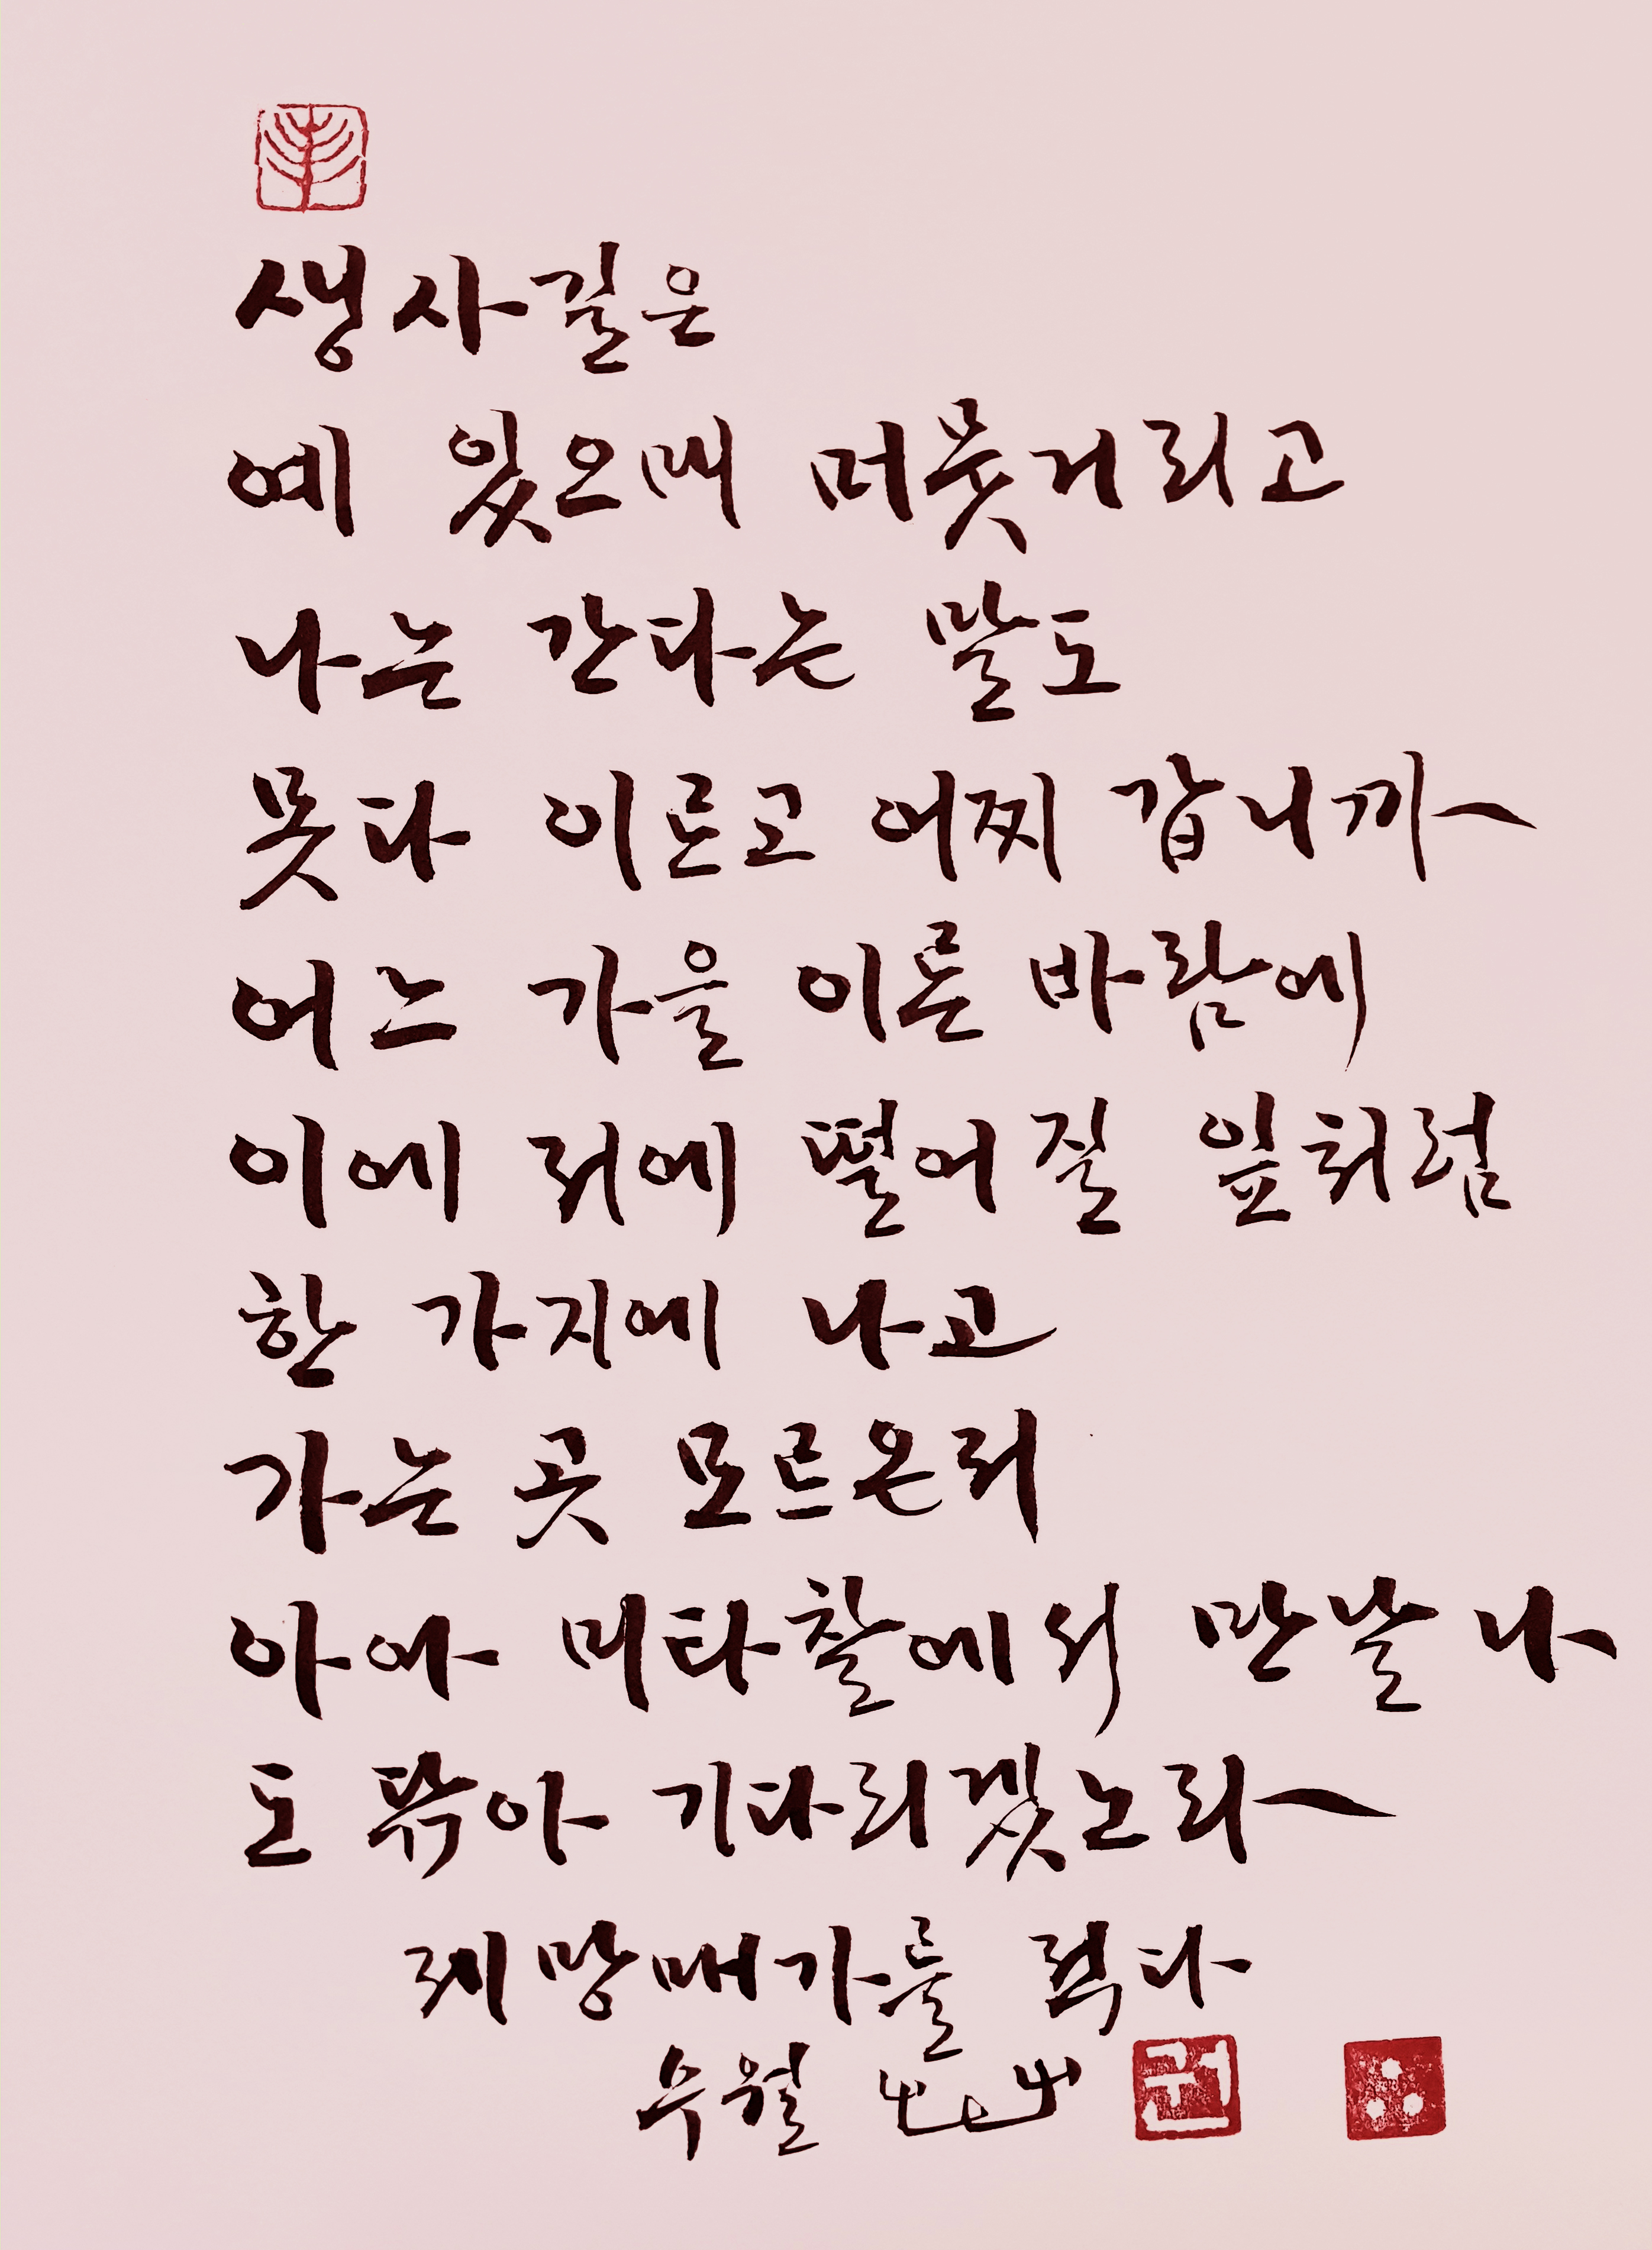 생사길은
예 있으매 머뭇거리고
나는 간다는 말도
못다 이르고 어찌 갑니까
어느 가을 이른 바람에
이에 저에 떨어질 잎처럼
한 가지에 나고
가는 곳 모르온저
아아 미타찰에서 만날 나
도 닦아 기다리겠노라
제망매가를 적다
우월